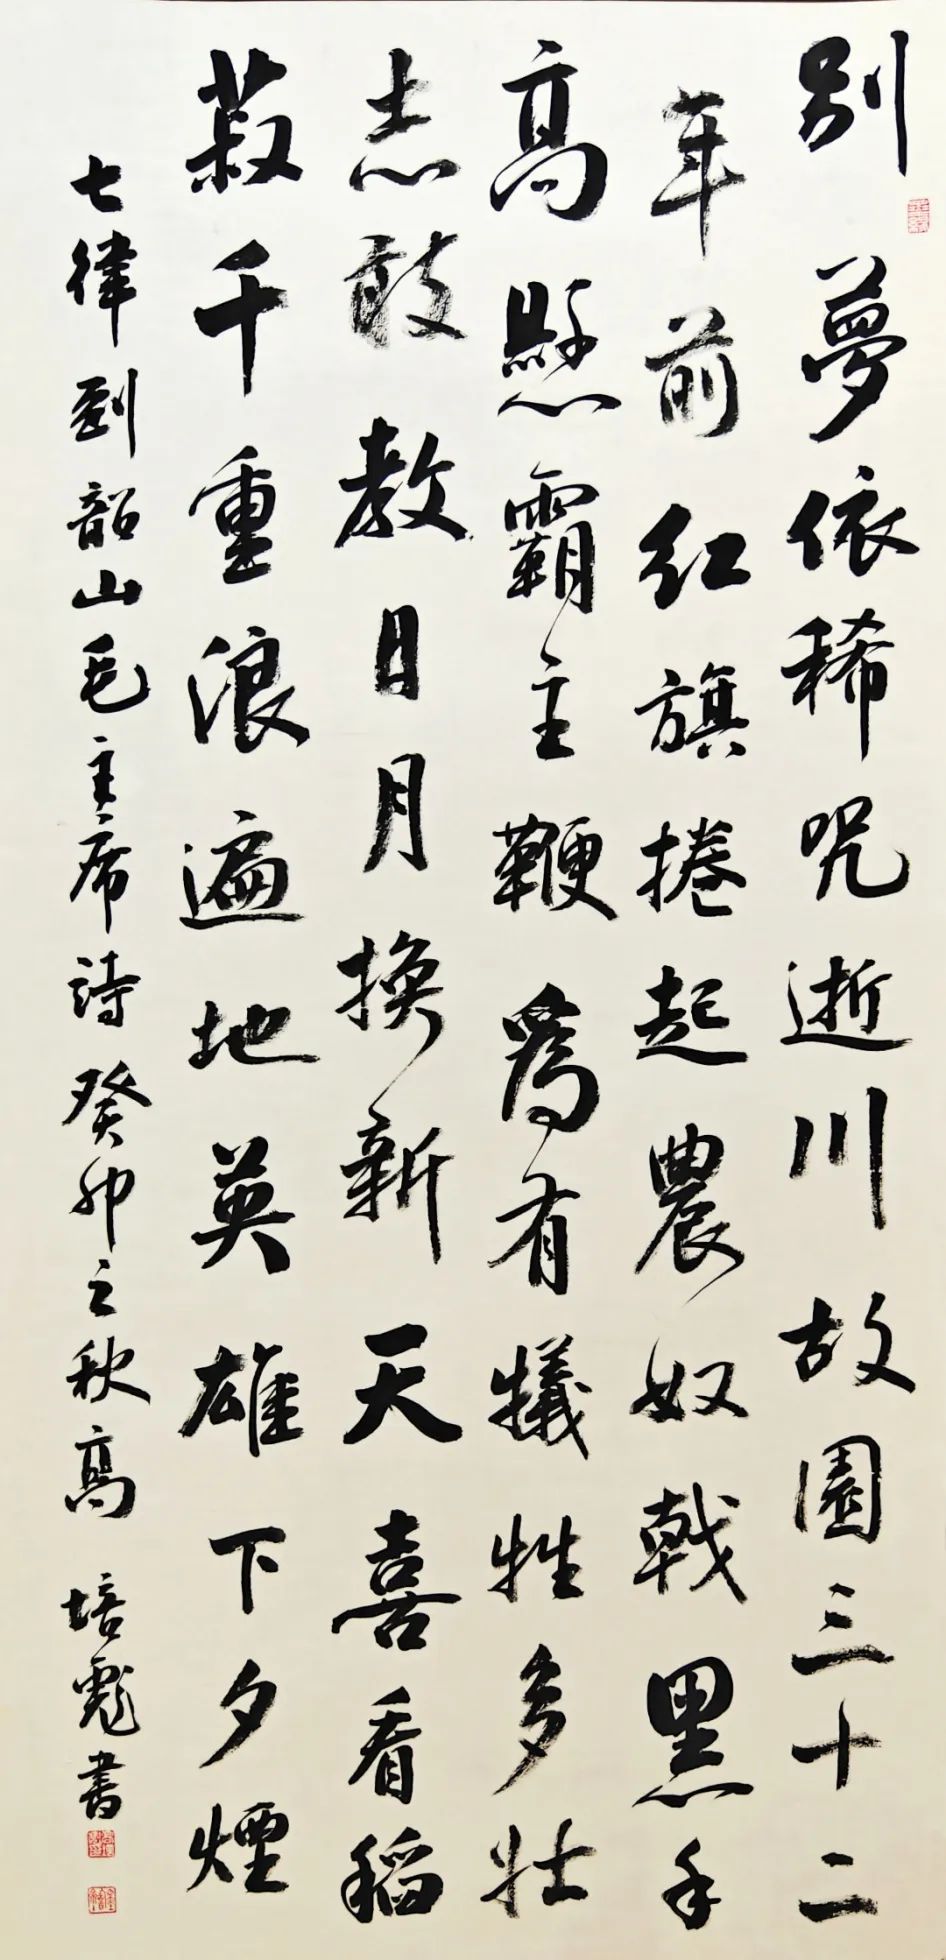 別夢依稀咒逝川故園三十二
年前紅旗捲起農奴戟黑手
高懸霸主鞭為有犧牲多壯
志敢教日月換新天喜看稻
菽千重浪遍地英雄下夕煙
七律到韶山毛主席詩癸卯之秋高培彪書